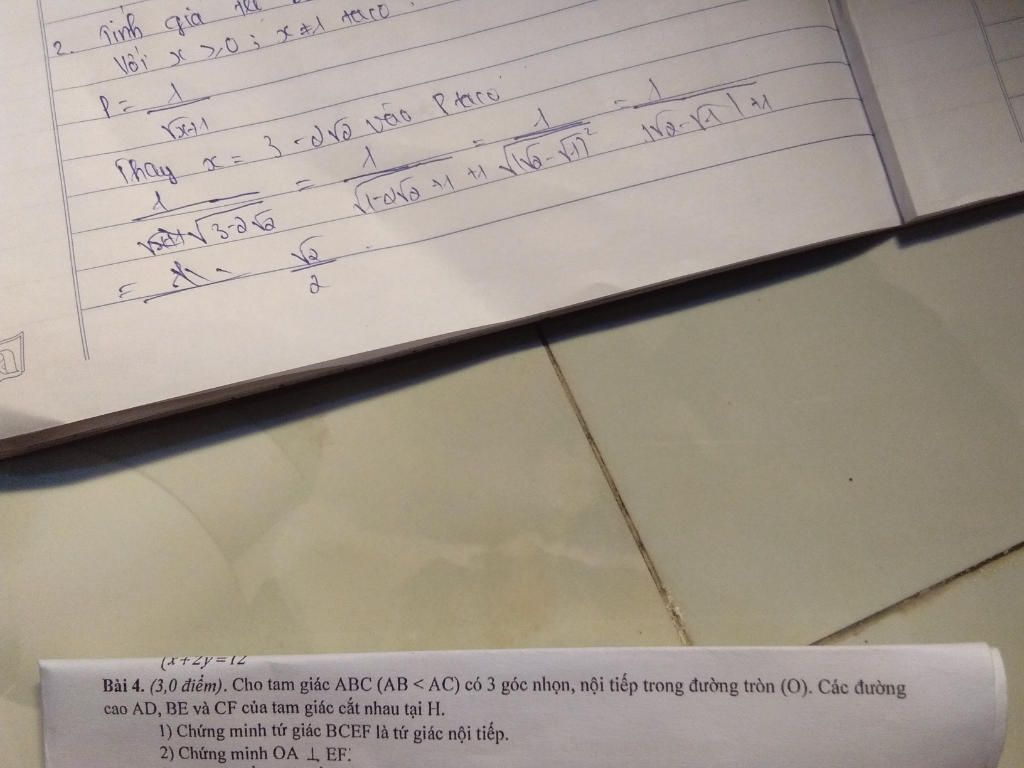 2. Tính giá
Với x ≥ 0 ; x ≠ 1 ta có :
P = 1/(√x+1)
Thay x = 3 - 2√2 vào P ta có
1/√(3-2√2) = 1/(√(1-2√2+1) + 1) = 1/√((√2-√1)²) = 1/(|√2-√1|+1)
= √2/2 .
(x+2y=12
Bài 4. (3,0 điểm). Cho tam giác ABC (AB < AC) có 3 góc nhọn, nội tiếp trong đường tròn (O). Các đường
cao AD, BE và CF của tam giác cắt nhau tại H.
1) Chứng minh tứ giác BCEF là tứ giác nội tiếp.
2) Chứng minh OA ⊥ EF.